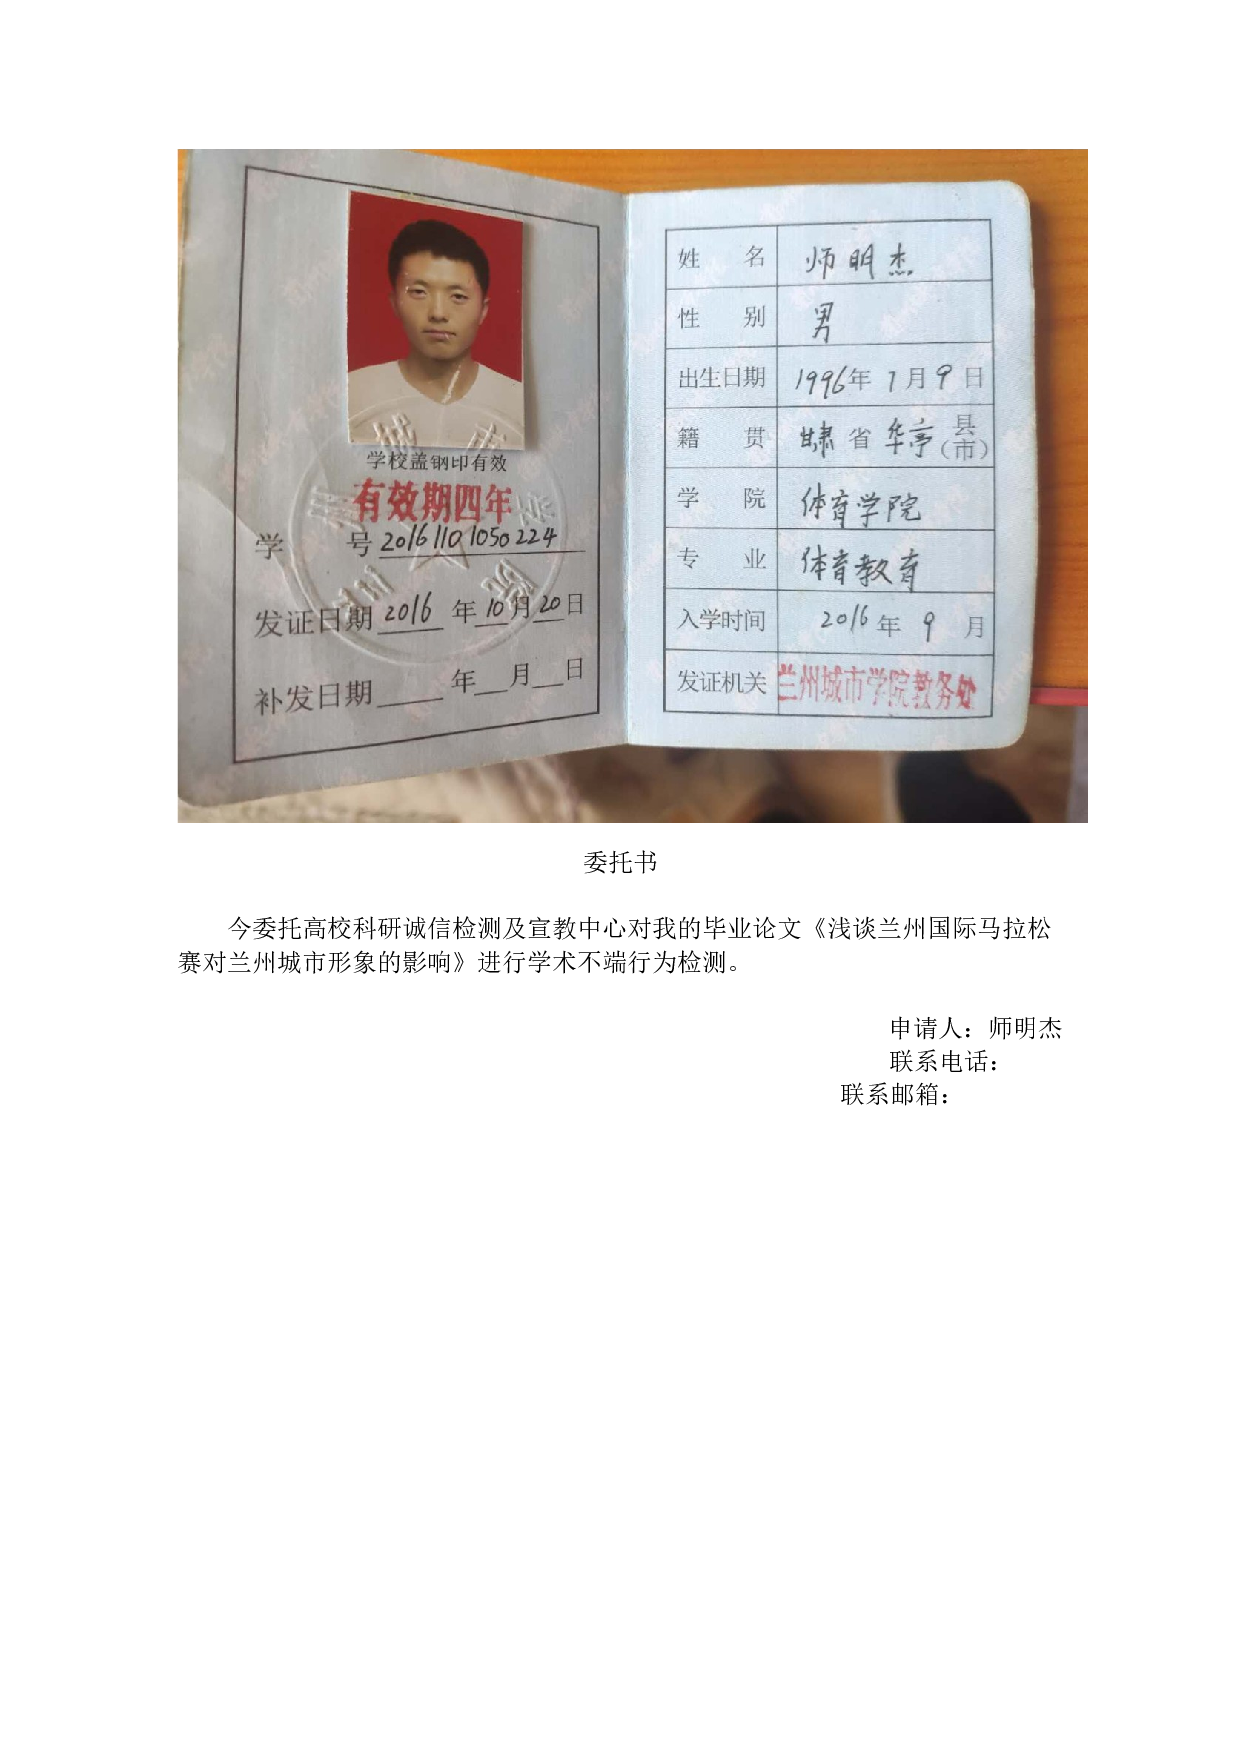 学校盖钢印有效
有效期四年
学 号 20161101050224
发证日期 2016 年 10 月 20 日
补发日期 年 月 日
姓 名 师明杰
性 别 男
出生日期 1996年 7月 9日
籍 贯 甘肃省 华亭 县(市)
学 院 体育学院
专 业 体育教育
入学时间 2016年 9 月
发证机关 兰州城市学院教务处
委托书
今委托高校科研诚信检测及宣教中心对我的毕业论文《浅谈兰州国际马拉松
赛对兰州城市形象的影响》进行学术不端行为检测。
申请人：师明杰
联系电话：
联系邮箱：